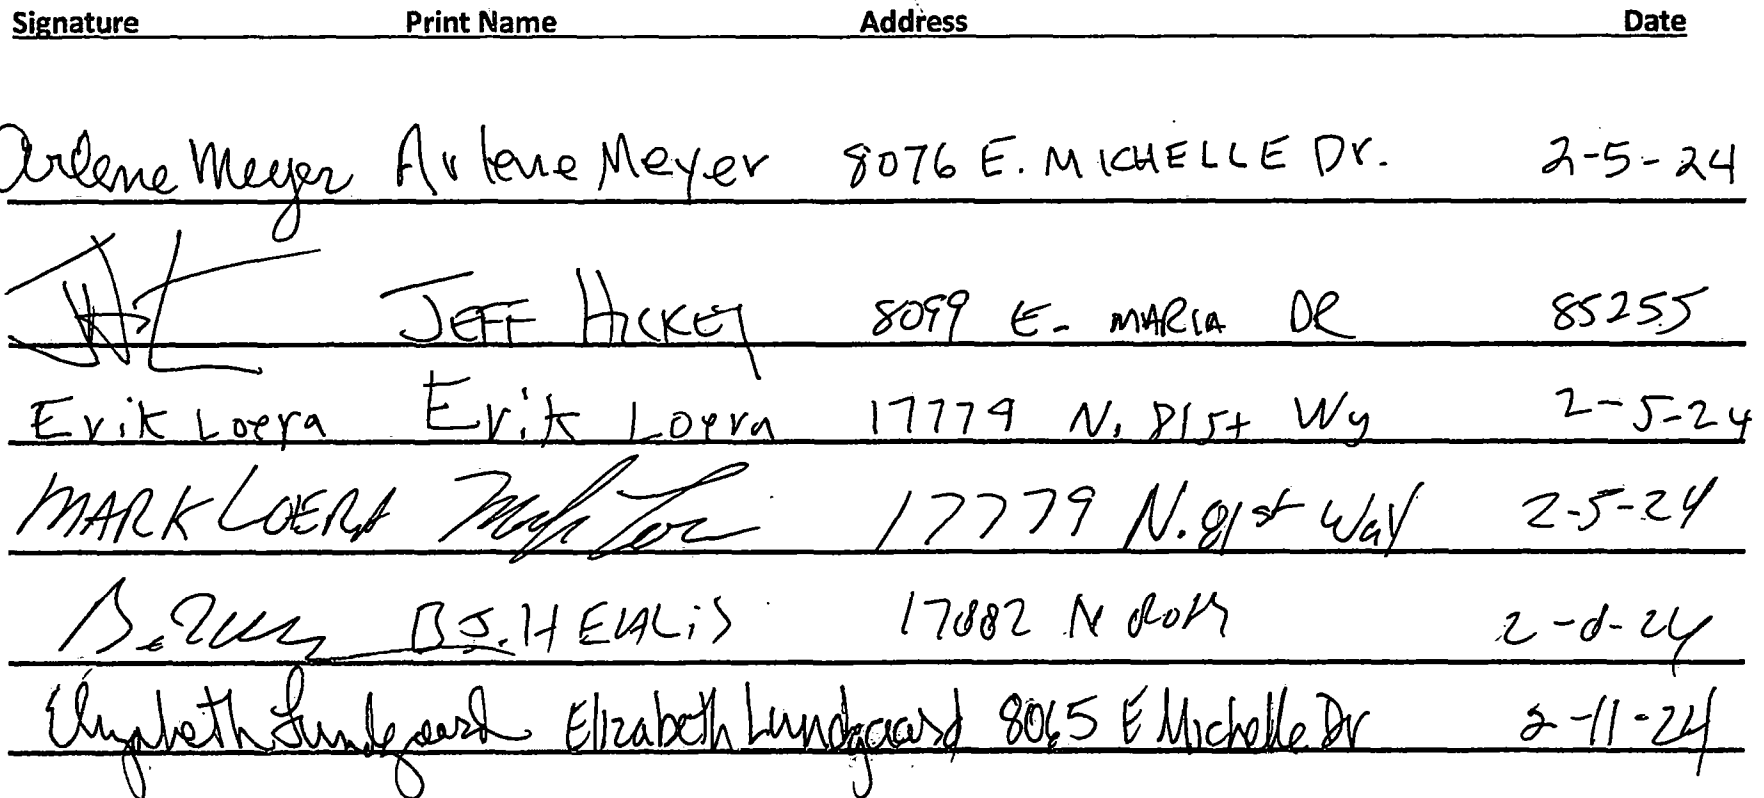 Signature Print Name Address Date
Arlene Meyer Arlene Meyer 8076 E. MICHELLE Dr. 2-5-24
JEFF HICKEY 8099 E. MARIA DR 85255
Erik Loera Erik Loera 17779 N. 81st Wy 2-5-24
MARK LOERA 17779 N. 81st Way 2-5-24
B.J. 17882 N 2-8-24
Elizabeth Lundgaard Elizabeth Lundgaard 8065 E Michelle Dr 2-11-24